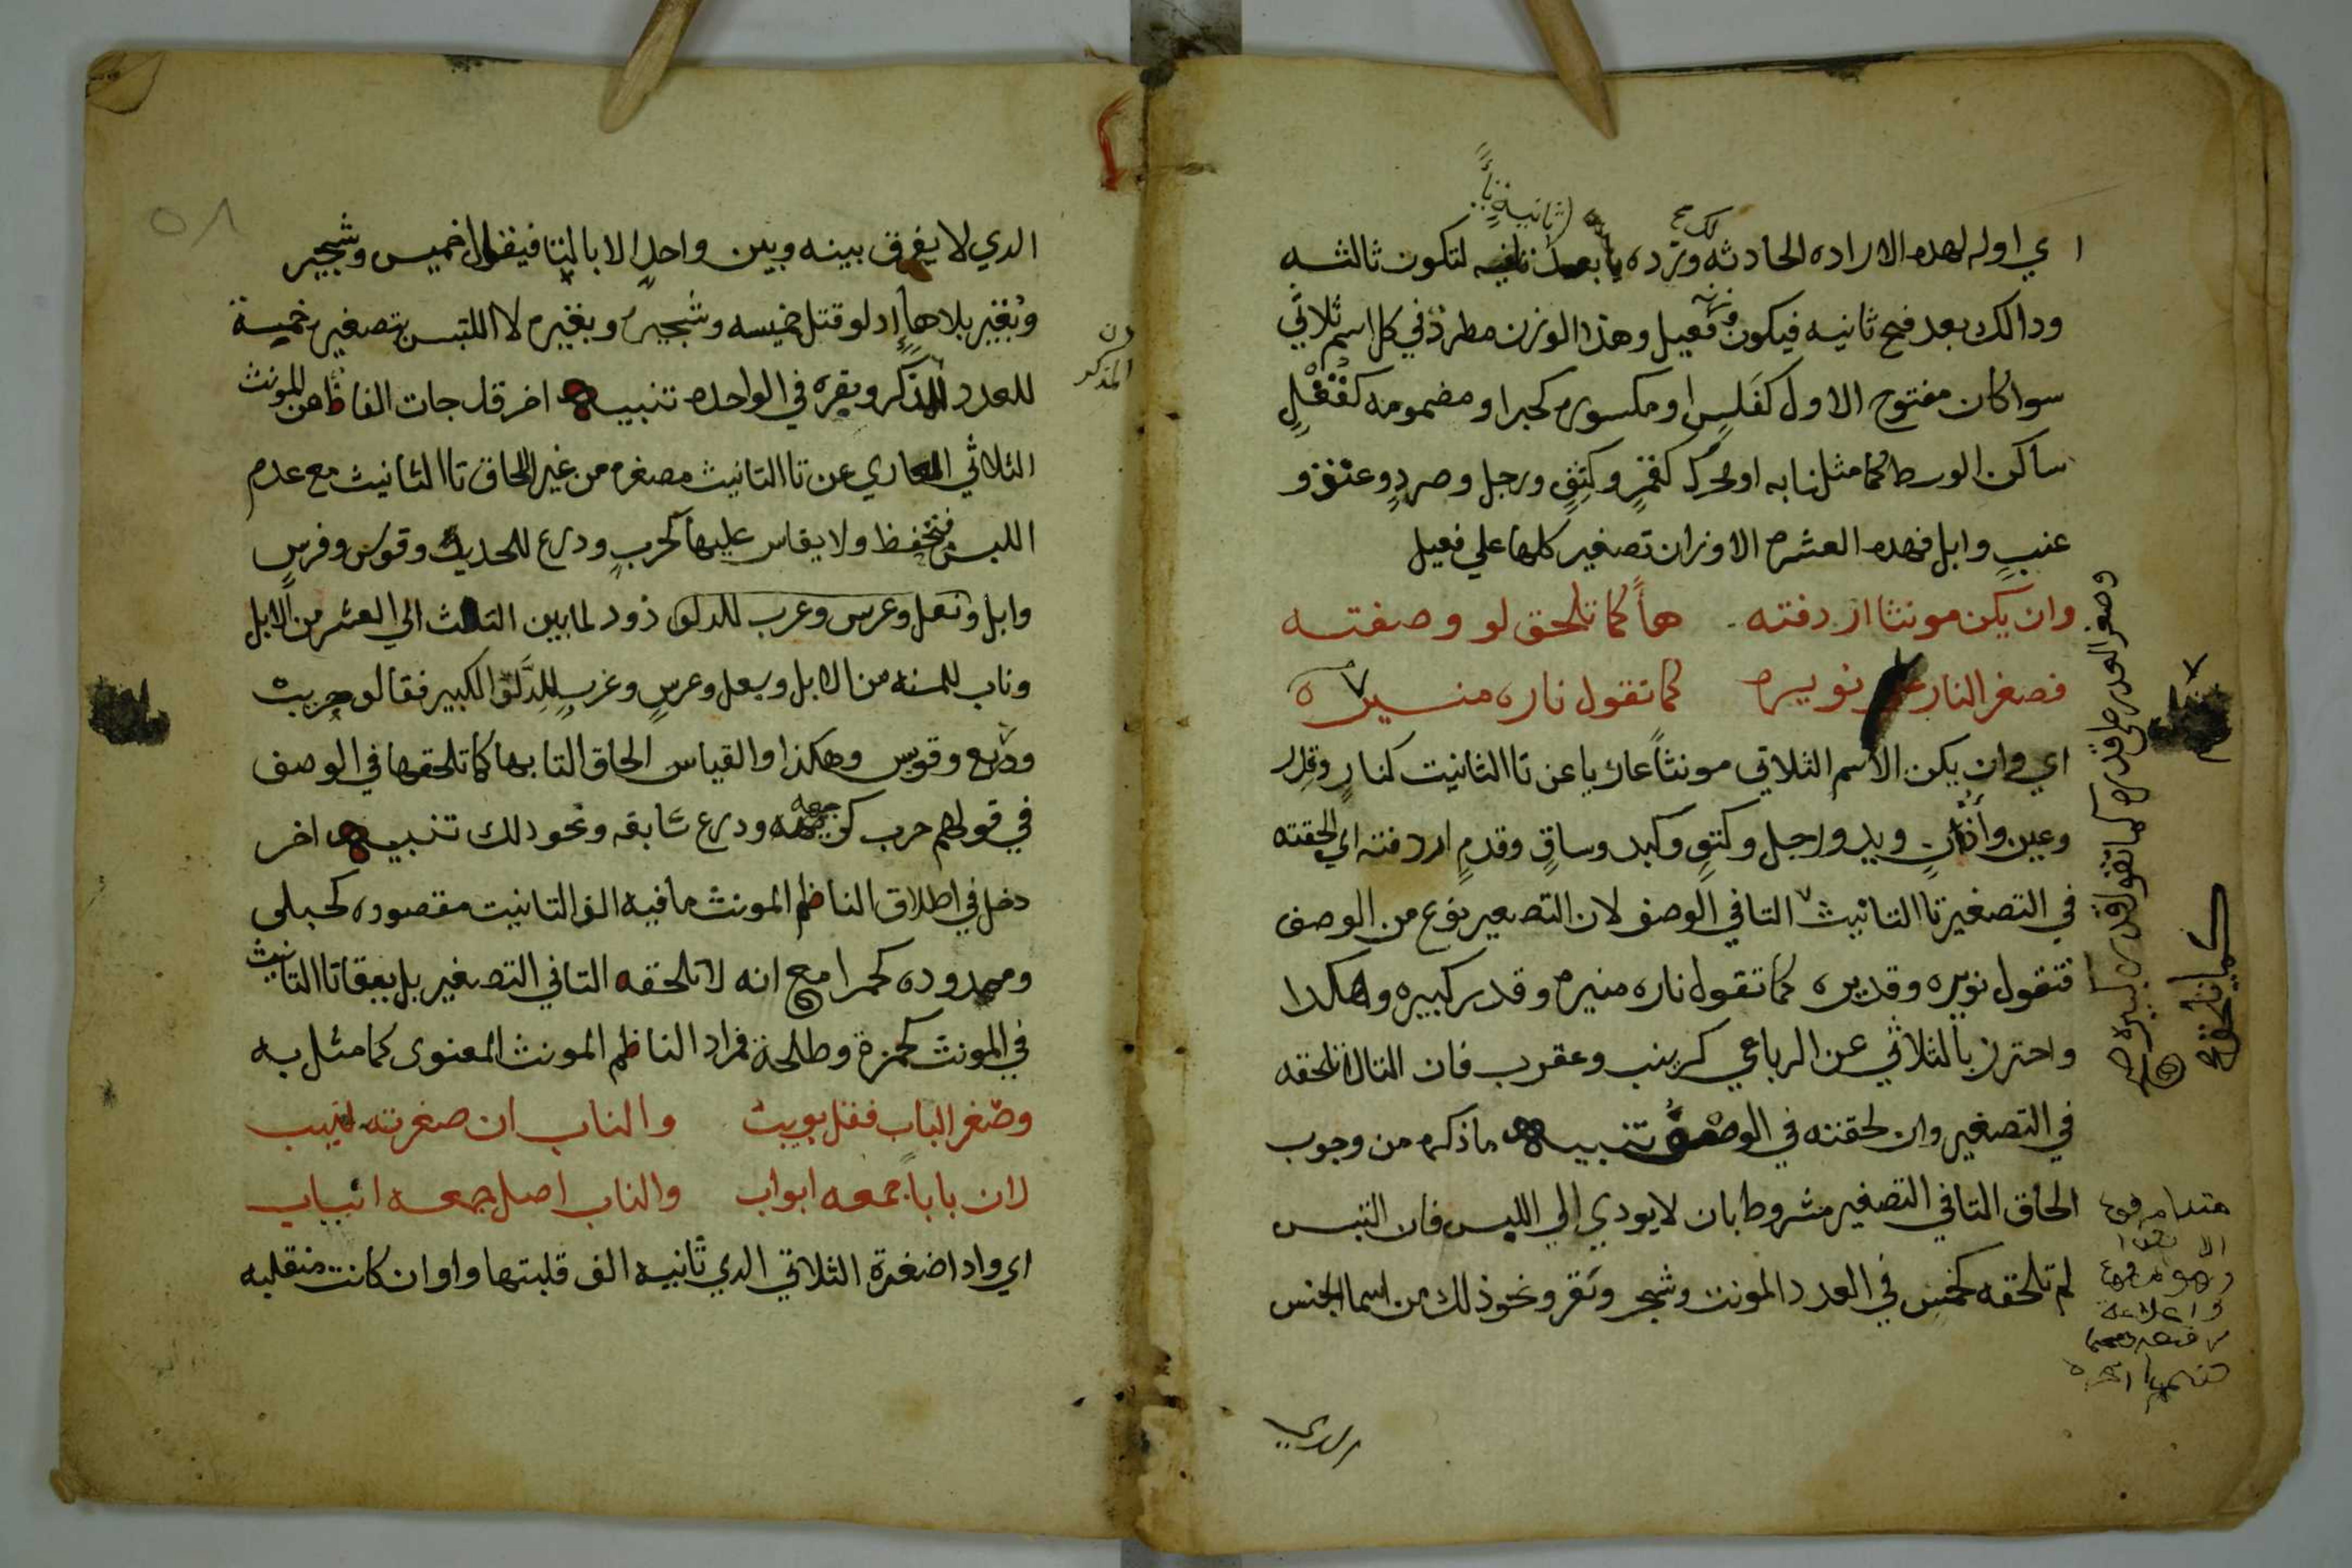 اي اوله لهده الاراده الحادثه وترده يا بعد ثانيه لتكون ثالثه
ودالك بعد فتح ثانيه فيكون فعيل وهذا الوزن مطرد في كل اسم ثلاثي
سوا كان مفتوح الاول كفلس او مكسوره كحبر او مضمومه كقفل
ساكن الوسط كما مثلنا به او محرك كقمر وكتف ورجل وصرد وعنق و
عنب وابل فهده العشره الاوزان تصغير كلها علي فعيل
وان يكن مونثا اردفته هأ كما تلحق لو وصفته
فصغر النار على نويره كما تقول ناره منيره
اي وان يكن الاسم الثلاثي مونثاً عاريا عن تا الثانيت كنار وقدر
وعين وأذن ويد ورجل وكتف وكبد وساق وقدم اردفته اي الحقته
في التصغير تا التانيث التا في الوصف لان التصعير نوع من الوصف
فتقول نويره وقديره كما تقول ناره منيره وقدر كبيره وهكدا
واحترز بالثلاثي عن الرباعي كزينب وعقرب فان التا لا تلحقه
في التصغير وان لحقته في الوصف تنبيه ما ذكره من وجوب
الحاق التا في التصغير مشروط بان لا يودي الي اللبس فان التبس
لم تلحقه كخمس في العدد المونت وشجر وبقر ونحو ذلك من اسما الجنس
وصغر القدر على قديره كما تقول قدر كبيره صح
كما تلحق
الدي
الدي لا يفرق بينه وبين واحد الا بالتا فيقول خميس وشجير
وبقير بلا هاٍ اد لو قتل خميسه وشجيره وبقيره لا التبس بتصغير خميسة
للعدد المذكر وبقره في الواحده تنبيه اخر قد جات الفاظ من المونث
الثلاثي العاري عن تا التانيث مصغره من غير الحاق تا التانيث مع عدم
اللبس فتحفظ ولا يقاس عليها كحرب ودرع للحديد وقوس وفرس
وابل ونعل وعرس وعرب للدلو ذود لما بين الثلاث الي العشر من الابل
وناب للمسنه من الابل وبعل وعرس وغرب للدلو الكبير فقالو حريب
ودريع وقويس وهكذا والقياس الحاق التا بها كما تلحقها في الوصف
في قولهم حرب ودرع سابقه ونحو دلك تنبيه اخر
دخل في اطلاق الناظم المونث ما فيه الف التانيت مقصوره كحبلى
وممدوده كحمرا مع انه لا تلحقه التا في التصغير بل يبقا تا التانيث
في المونث كحمزة وطلحة فمراد الناظم المونث المعنوى كما مثل به
وصغر الباب فقل بويب والناب ان صغرته نييب
لان باباً جمعه ابواب والناب اصل جمعه انياب
اي واذا صغرة الثلاثي الدي ثانيه الف قلبتها واوا ان كانت منقلبه